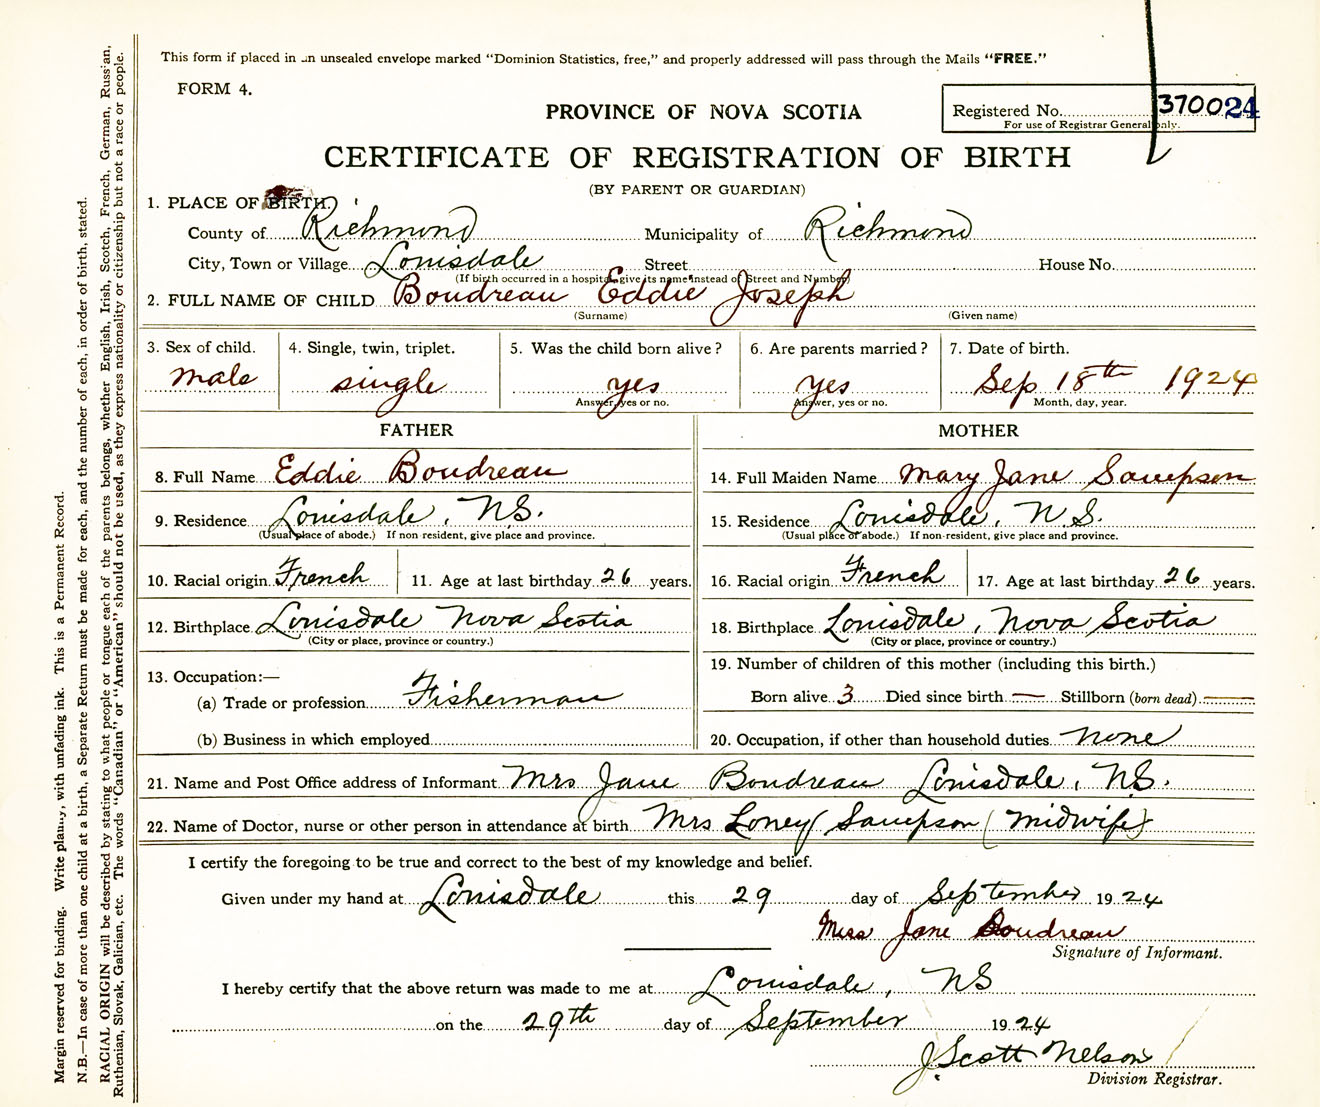 This form if placed in an unsealed envelope marked "Dominion Statistics, free," and properly addressed will pass through the Mails "FREE."
FORM 4.
PROVINCE OF NOVA SCOTIA
Registered No. 370024
For use of Registrar General only.
CERTIFICATE OF REGISTRATION OF BIRTH
(BY PARENT OR GUARDIAN)
1. PLACE OF BIRTH.
County of Richmond Municipality of Richmond
City, Town or Village Louisdale Street House No.
(If birth occurred in a hospital, give its name instead of Street and Number)
2. FULL NAME OF CHILD Boudreau Eddie Joseph
(Surname) (Given name)
3. Sex of child. 4. Single, twin, triplet. 5. Was the child born alive? 6. Are parents married? 7. Date of birth.
male single yes yes Sep 18th 1924
Answer, yes or no. Answer, yes or no. Month, day, year.
FATHER MOTHER
8. Full Name Eddie Boudreau 14. Full Maiden Name Mary Jane Sampson
9. Residence Louisdale, N.S. 15. Residence Louisdale, N.S.
(Usual place of abode.) If non-resident, give place and province. (Usual place of abode.) If non-resident, give place and province.
10. Racial origin French 11. Age at last birthday 26 years. 16. Racial origin French 17. Age at last birthday 26 years.
12. Birthplace Louisdale Nova Scotia 18. Birthplace Louisdale, Nova Scotia
(City or place, province or country.) (City or place, province or country.)
13. Occupation:— 19. Number of children of this mother (including this birth.)
(a) Trade or profession Fisherman Born alive 3 Died since birth — Stillborn (born dead) —
(b) Business in which employed 20. Occupation, if other than household duties none
21. Name and Post Office address of Informant Mrs Jane Boudreau Louisdale, N.S.
22. Name of Doctor, nurse or other person in attendance at birth Mrs Loney Sampson (midwife)
I certify the foregoing to be true and correct to the best of my knowledge and belief.
Given under my hand at Louisdale this 29 day of September 1924
Jane Boudreau
Signature of Informant.
I hereby certify that the above return was made to me at Louisdale, NS
on the 29th day of September 1924
J. Scott Nelson
Division Registrar.
Margin reserved for binding. Write plainly, with unfading ink. This is a Permanent Record.
N.B.—In case of more than one child at a birth, a Separate Return must be made for each, and the number of each, in order of birth, stated.
RACIAL ORIGIN will be described by stating to what people or tongue each of the parents belongs, whether English, Irish, Scotch, French, German, Russian,
Ruthenian, Slovak, Galician, etc. The words "Canadian" or "American" should not be used, as they express nationality or citizenship but not a race or people.